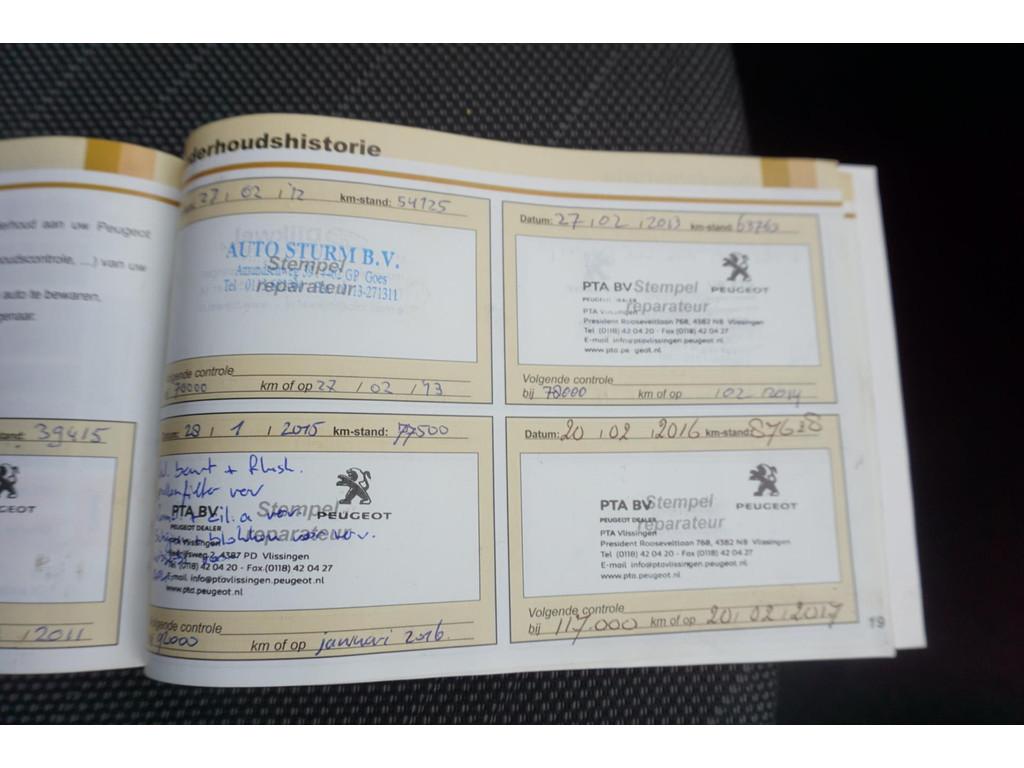 derhoudshistorie
derhoud aan uw Peugeot
houdscontrole, ...) van uw
auto te bewaren.
genaar.
39415
2011
27 / 02 / '12 km-stand: 54125
AUTO STURM B.V.
Stempel
reparateur
GP Goes
Tel
13-271311
Volgende controle
78000 km of op 27 / 02 / 13
Datum: 27 / 02 / 2013 km-stand:
PTA BV Stempel
reparateur
PEUGEOT
PTA Vlissingen
President Rooseveltlaan 768, 4382 NB Vlissingen
Tel (0118) 42 04 20 - Fax (0118) 42 04 27
E-mail info@ptavlissingen.peugeot.nl
www.pta.peugeot.nl
Volgende controle
bij 78000 km of op / 02 / 2014
28 / 1 / 2015 km-stand: 77500
beurt + flush.
Stempel
reparateur
PTA BV
PEUGEOT
PEUGEOT DEALER
PTA Vlissingen
4387 PD Vlissingen
(0118) 42 04 20 - Fax (0118) 42 04 27
E-mail info@ptavlissingen.peugeot.nl
www.pta.peugeot.nl
Volgende controle
km of op januari 2016.
Datum: 20 / 02 / 2016 km-stand: 87638
PTA BV Stempel
reparateur
PEUGEOT
PEUGEOT DEALER
PTA Vlissingen
President Rooseveltlaan 768, 4382 NB Vlissingen
Tel (0118) 42 04 20 - Fax (0118) 42 04 27
E-mail info@ptavlissingen.peugeot.nl
www.pta.peugeot.nl
Volgende controle
bij 117.000 km of op 20 / 02 / 2017
19